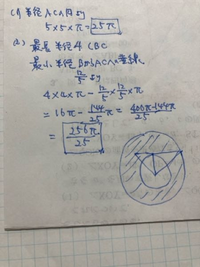 (1) 半径AC
5×5×π=25π
(2) 最長半径4 CBC
最小半径 BからACへの垂線
12/5より
4×4×π-12/5×12/5×π
=16π-144/25π=400π-144π/25
=256π/25